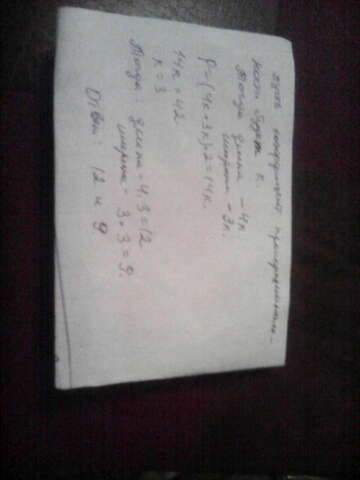 Пусть коэффициент пропорциональ-
ности будет k.
Тогда длина - 4k
ширина - 3k.
P = (4k+3k)·2 = 14k.
14k = 42
k = 3
Тогда: длина = 4·3 = 12
ширина = 3·3 = 9.
Ответ: 12 и 9